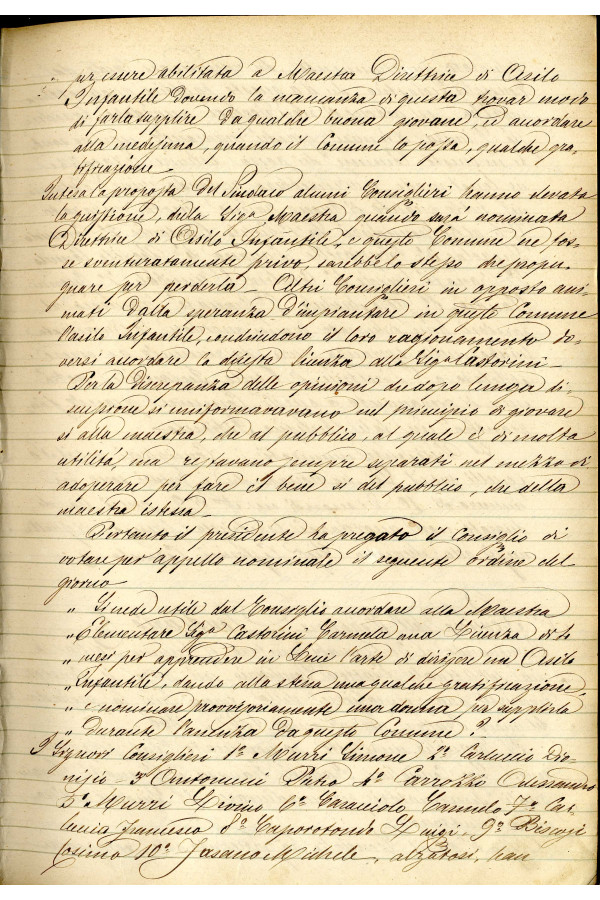 per essere abilitata a Maestra Direttrice di Asilo
Infantile dovendo la mancanza di questa trovar modo
di farla supplire da qualche buona giovane, ed accordare
alla medesima, quando il Comune lo possa, qualche gra-
tificazione
Intesa la proposta del Sindaco alcuni Consiglieri hanno elevata
la quistione, della Sigª Maestra quando sarà nominata
Direttrice di Asilo Infantile, e questo Comune ne fos-
se sventuratamente privo, sarebbe lo stesso che propu-
gnare per perderla. Altri Consiglieri in opposto ani-
mati dalla speranza d'impiantare in questo Comune
l'asilo Infantile, conchiudono il loro ragionamento do-
versi accordare la chiesta licenza alla Sigª Castorini.
Per la discrepanza delle opinioni che dopo lunga di-
scussione si uniformavano nel principio di giovare
sì alla maestra, che al pubblico, al quale è di molta
utilità, ma restavano sempre separati nel mezzo di
adoperare per fare il bene sì del pubblico, che della
maestra istessa
Pertanto il presidente ha pregato il Consiglio di
votare per appello nominale il seguente ordine del
giorno
„ Si crede utile dal Consiglio accordare alla Maestra
„ Elementare Sigª Castorini Carmela una Licenza di
„ mesi per apprendere in Lecce l'arte di dirigere un Asilo
„ Infantile, dando alla stessa una qualche gratificazione,
„ e nominare provvisoriamente una donna per supplirla
„ durante l'assenza da questo Comune?
I Signori Consiglieri 1º Murri Simone 2º Carluccio Dio-
nigio - 3 Antonucci Pietro 4º Carrozzo Alessandro
5º Murri Livino 6º Caracciolo Carmelo 7º Car-
luccio Francesco 8º Caporotondo Luigi, 9º
Cosimo 10º Fasano Michele, alzatosi, han